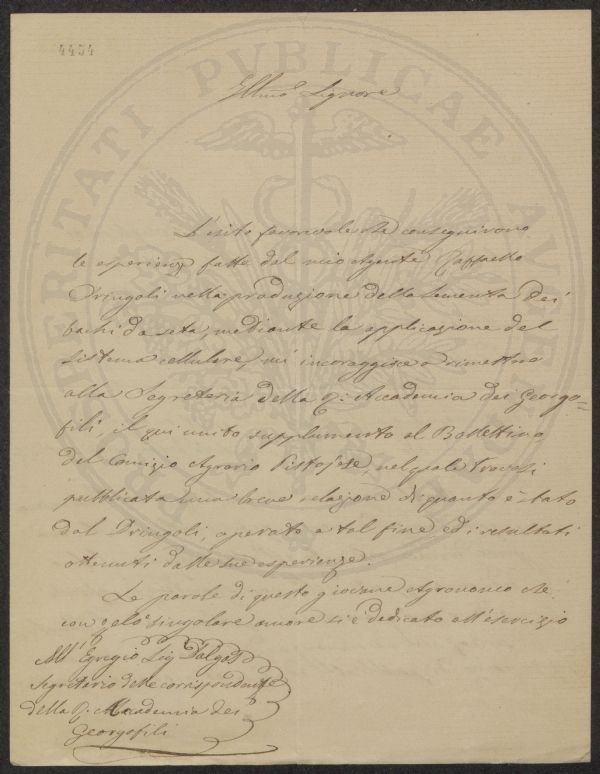 4454
PROSPERITATI PVBLICAE AVGENDAE
Illmo Signore
L'esito favorevole che conseguirono
le esperienze fatte dal mio Agente Raffaello
Dringoli nella produzione della Sementa dei
bachi da seta, mediante la applicazione del
sistema cellulare, mi incoraggisce a rimettere
alla Segreteria della R. Accademia dei Georgo=
fili, il qui unito supplemento al Bollettino
del Comizio Agrario Pistojese, nel quale trovasi
pubblicata una breve relazione di quanto è stato
dal Dringoli, operato a tal fine ed i resultati
ottenuti dalle sue esperienze.
Le parole di questo giovane Agronomo che
con zelo e singolare amore si è dedicato all'esercizio
All' Egregio Sig.
Segretario delle corrispondenze
della R. Accademia dei
Georgofili